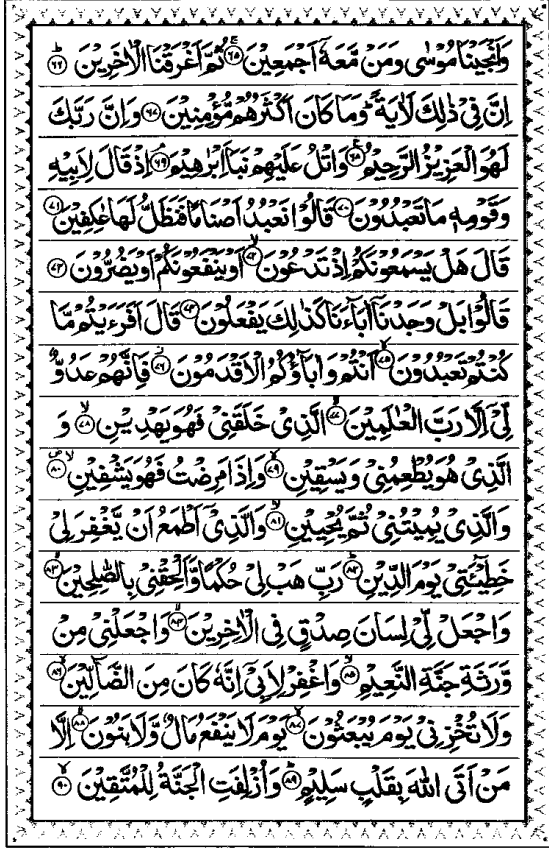 وَاَنْجَيْنَا مُوْسٰى وَمَنْ مَّعَهٗۤ اَجْمَعِيْنَ ۚ‏﴿۶۵﴾ ثُمَّ اَغْرَقْنَا الْاٰخَرِيْنَ ؕ‏﴿۶۶﴾
اِنَّ فِىْ ذٰلِكَ لَاٰيَةً ؕ وَمَا كَانَ اَكْثَرُهُمْ مُّؤْمِنِيْنَ ﴿۶۷﴾ وَاِنَّ رَبَّكَ
لَهُوَ الْعَزِيْزُ الرَّحِيْمُ ﴿۶۸﴾ وَاتْلُ عَلَيْهِمْ نَبَاَ اِبْرٰهِيْمَ ۘ‏﴿۶۹﴾ اِذْ قَالَ لِاَبِيْهِ
وَقَوْمِهٖ مَا تَعْبُدُوْنَ ﴿۷۰﴾ قَالُوْا نَعْبُدُ اَصْنَامًا فَنَظَلُّ لَهَا عٰكِفِيْنَ ﴿۷۱﴾
قَالَ هَلْ يَسْمَعُوْنَكُمْ اِذْ تَدْعُوْنَ ۙ‏﴿۷۲﴾ اَوْ يَنْفَعُوْنَكُمْ اَوْ يَضُرُّوْنَ ﴿۷۳﴾
قَالُوْا بَلْ وَجَدْنَاۤ اٰبَآءَنَا كَذٰلِكَ يَفْعَلُوْنَ ﴿۷۴﴾ قَالَ اَفَرَءَيْتُمْ مَّا
كُنْتُمْ تَعْبُدُوْنَ ۙ‏﴿۷۵﴾ اَنْتُمْ وَاٰبَآؤُكُمُ الْاَقْدَمُوْنَ ۖ‏﴿۷۶﴾ فَاِنَّهُمْ عَدُوٌّ
لِّىْۤ اِلَّا رَبَّ الْعٰلَمِيْنَ ۙ‏﴿۷۷﴾ الَّذِىْ خَلَقَنِىْ فَهُوَ يَهْدِيْنِ ۙ‏﴿۷۸﴾ وَ
الَّذِىْ هُوَ يُطْعِمُنِىْ وَيَسْقِيْنِ ۙ‏﴿۷۹﴾ وَاِذَا مَرِضْتُ فَهُوَ يَشْفِيْنِ ۙ‏﴿۸۰﴾
وَالَّذِىْ يُمِيْتُنِىْ ثُمَّ يُحْيِيْنِ ۙ‏﴿۸۱﴾ وَالَّذِىْۤ اَطْمَعُ اَنْ يَّغْفِرَ لِىْ
خَطِيْٓـَٔتِىْ يَوْمَ الدِّيْنِ ؕ‏﴿۸۲﴾ رَبِّ هَبْ لِىْ حُكْمًا وَّاَلْحِقْنِىْ بِالصّٰلِحِيْنَ ۙ‏﴿۸۳﴾
وَاجْعَلْ لِّىْ لِسَانَ صِدْقٍ فِى الْاٰخِرِيْنَ ۙ‏﴿۸۴﴾ وَاجْعَلْنِىْ مِنْ
وَّرَثَةِ جَنَّةِ النَّعِيْمِ ۙ‏﴿۸۵﴾ وَاغْفِرْ لِاَبِىْۤ اِنَّهٗ كَانَ مِنَ الضَّآلِّيْنَ ۙ‏﴿۸۶﴾
وَلَا تُخْزِنِىْ يَوْمَ يُبْعَثُوْنَ ۙ‏﴿۸۷﴾ يَوْمَ لَا يَنْفَعُ مَالٌ وَّلَا بَنُوْنَ ۙ‏﴿۸۸﴾ اِلَّا
مَنْ اَتَى اللّٰهَ بِقَلْبٍ سَلِيْمٍ ؕ‏﴿۸۹﴾ وَاُزْلِفَتِ الْجَنَّةُ لِلْمُتَّقِيْنَ ۙ‏﴿۹۰﴾